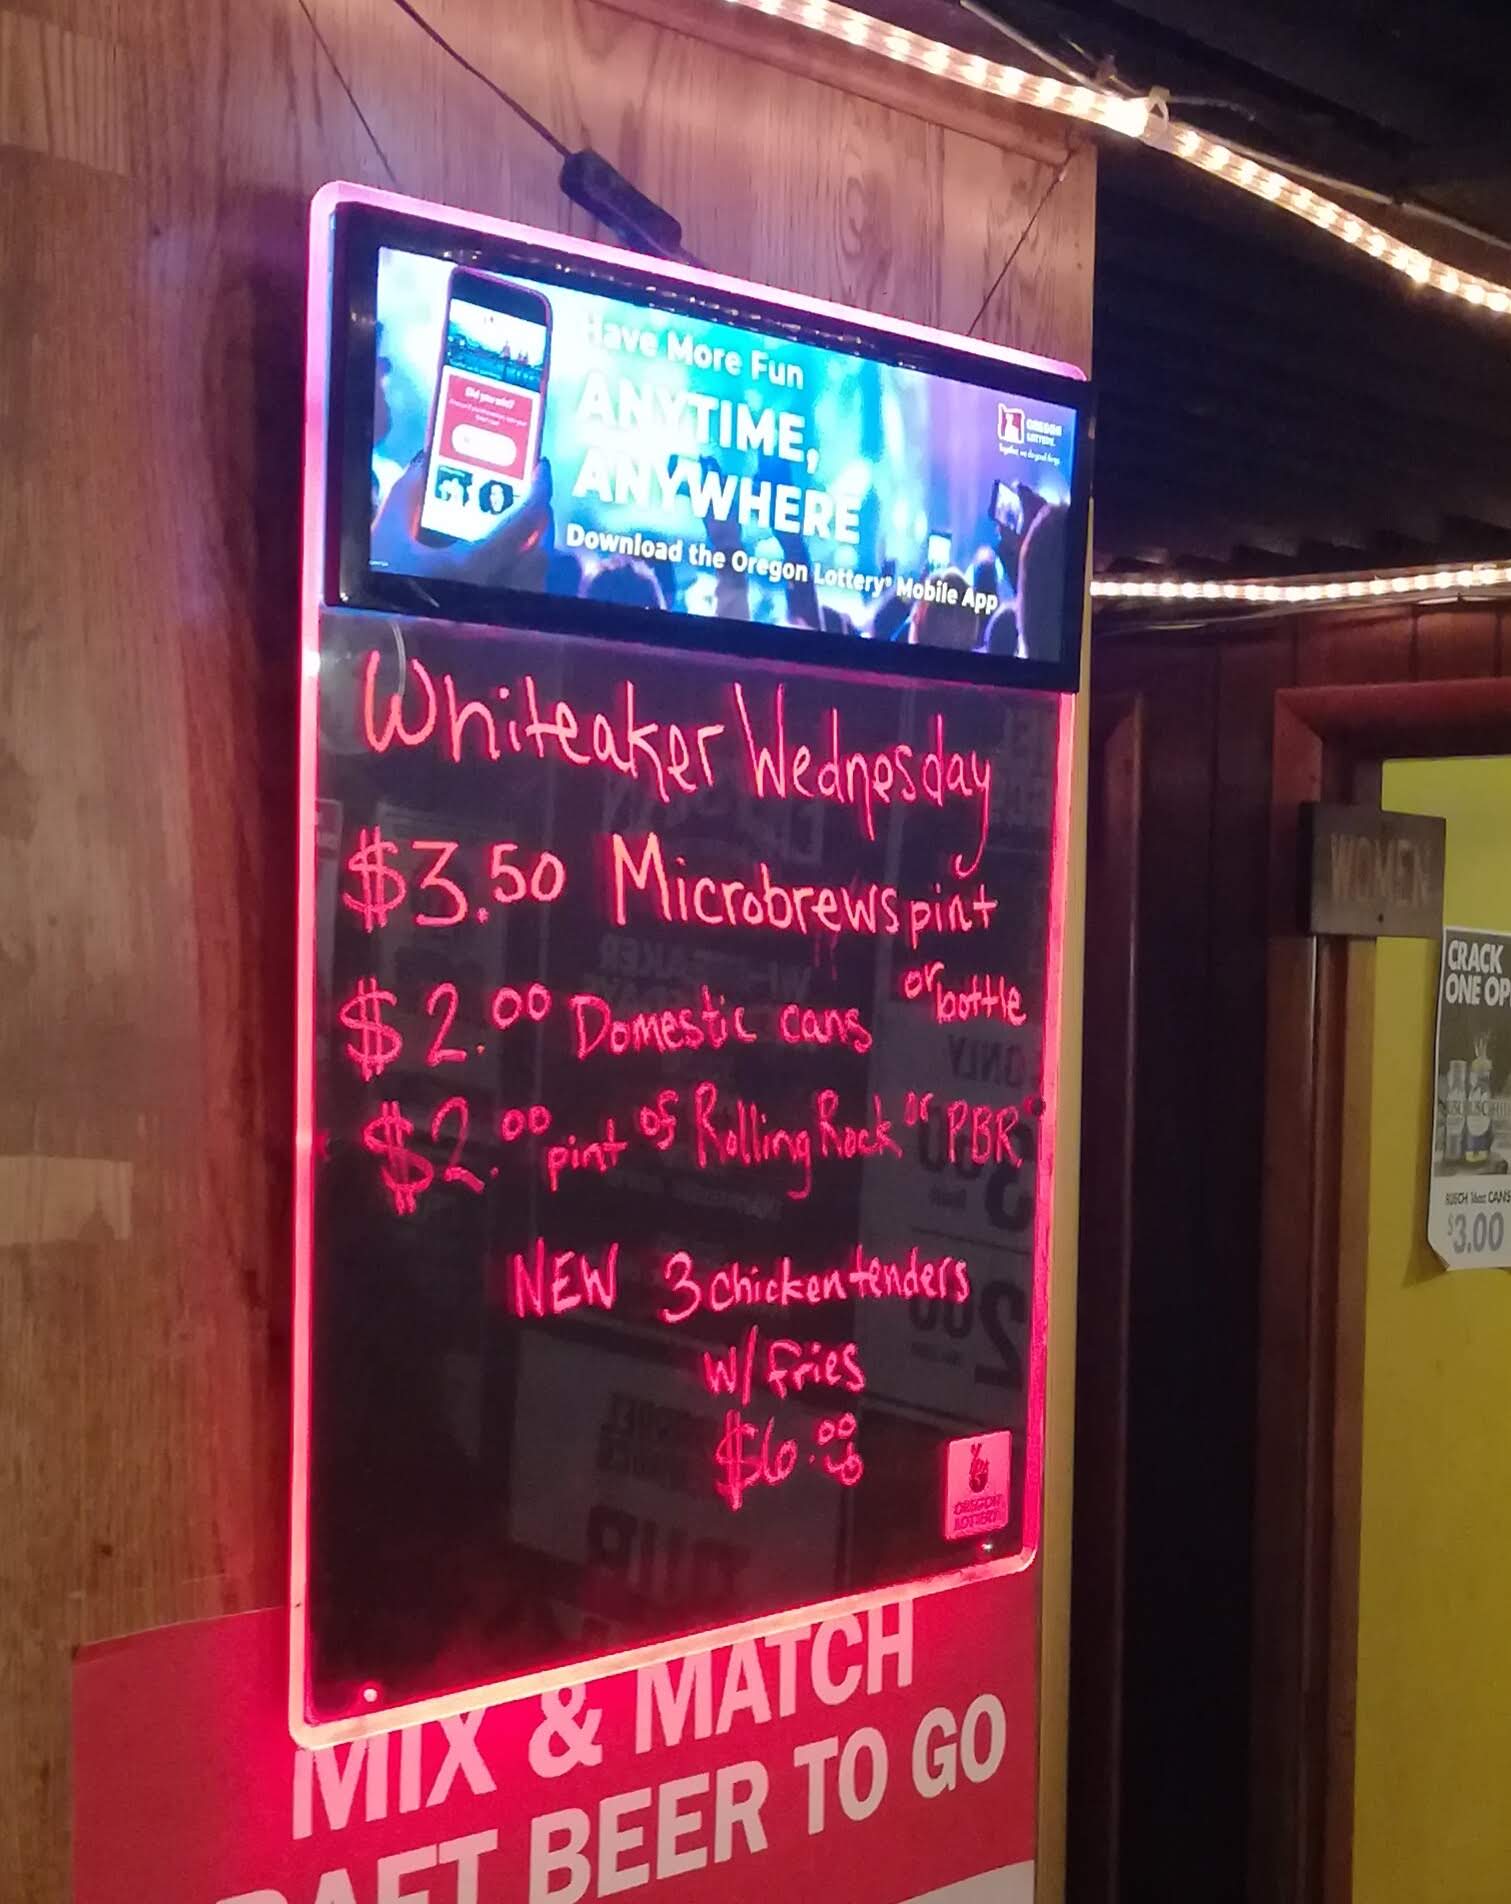 Have More Fun
ANYTIME,
ANYWHERE
Download the Oregon Lottery® Mobile App
Did you win?
OREGON
LOTTERY
Whiteaker Wednesday
$3.50 Microbrews pint
or bottle
$2.00 Domestic cans
$2.00 pint of Rolling Rock or PBR
NEW 3 chicken tenders
w/ fries
$6.00
OREGON
LOTTERY
MIX & MATCH
RAFT BEER TO GO
WOMEN
CRACK
ONE OP
BUSCH 16oz CANS
$3.00